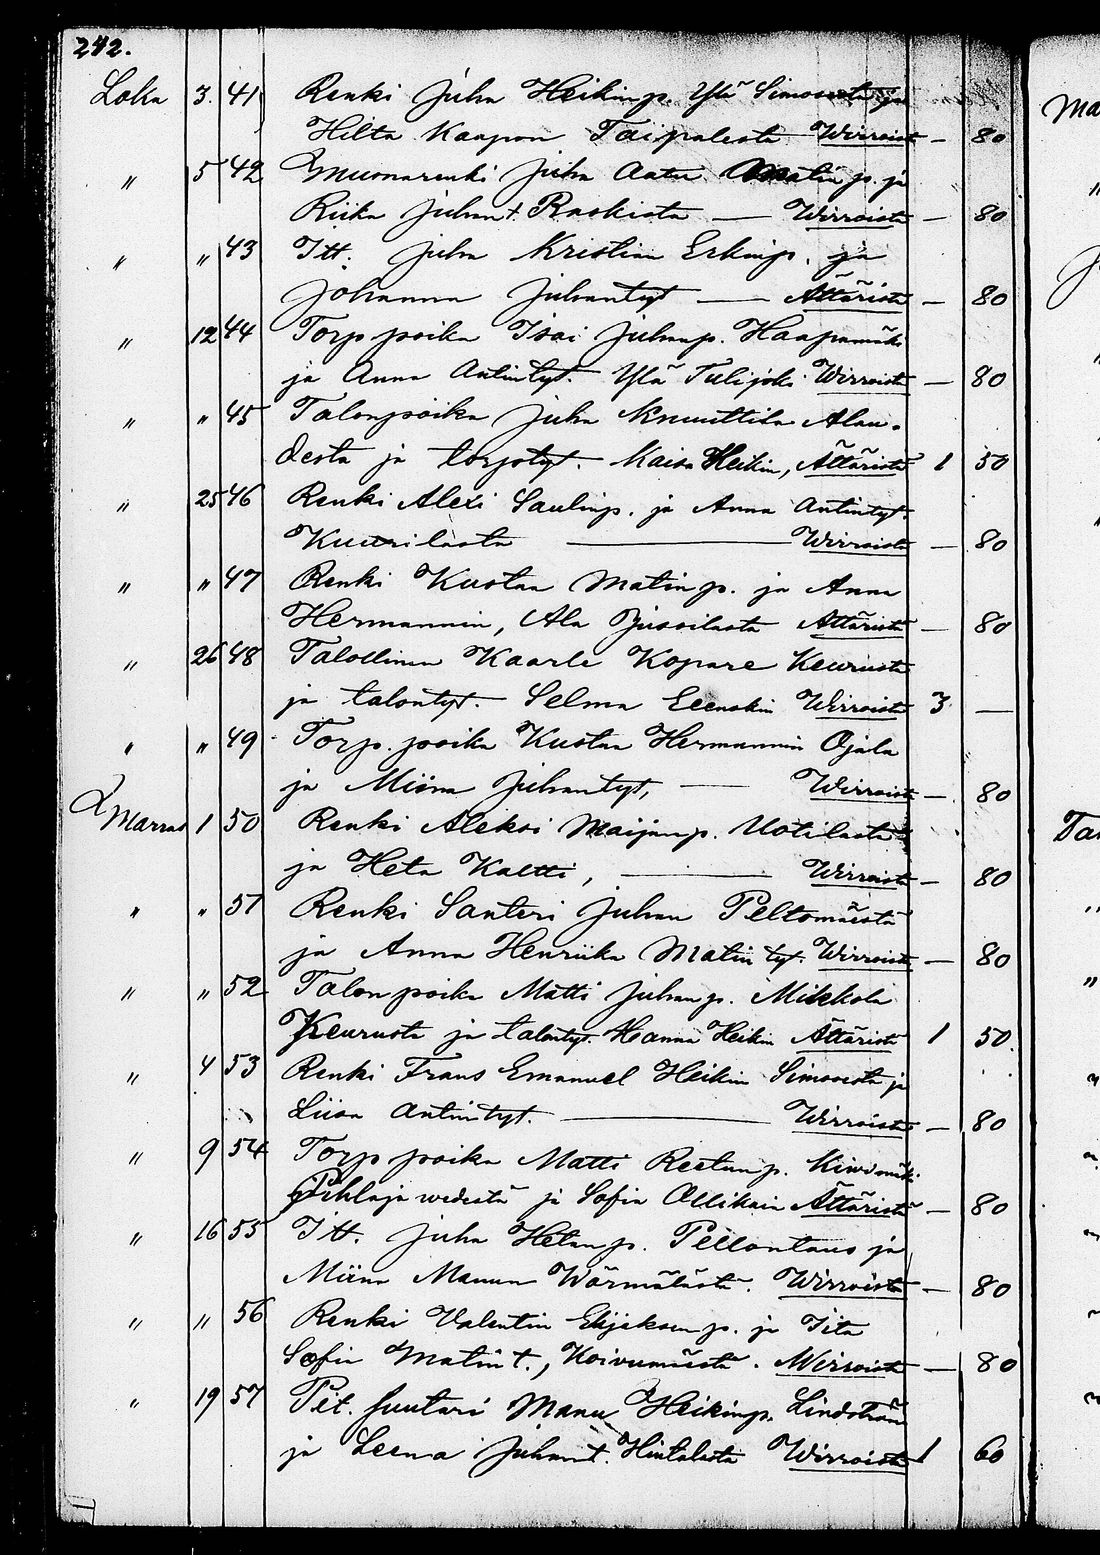 242.
Loka 3. 41 Renki Juha Heikinp. Ylä Simosesta ja
Hilta Kaapon Taipaleesta Wirroista — 80
" 5 42 Muonarenki Juha Aatu Matinp. ja
Riika Juhant. Raskista — Wirroista — 80
" " 43 Itt. Juha Kristian Erkinp. ja
Johanna Juhantyt — Ättäristä — 80
" 12 44 Torp poika Isai Juhanp. Haapamäki
ja Anna Antintyt. Ylä Tulijoki Wirroista — 80
" " 45 Talonpoika Juha Knuuttila Alau-
desta ja torpntyt. Maisa Heikin, Ättäristä 1 50
" 25 46 Renki Alexi Saulinp. ja Anna Antintyt.
Kuurilasta — Wirroista — 80
" " 47 Renki Kustaa Matinp. ja Anna
Hermannin, Ala Jussilasta Ättäristä — 80
" 26 48 Talollinen Kaarle Kopare Keuruusta
ja talontyt. Selma Eenokin Wirroista 3 —
" " 49 Torp. poika Kustaa Hermannin Ojala
ja Miina Juhantyt, — Wirroista — 80
Marras 1 50 Renki Aleksi Maijanp. Uotilasta
ja Heta Kaetti, — Wirroista — 80
" " 51 Renki Santeri Juhan Peltomäestä
ja Anna Henriika Matin tyt. Wirroista — 80
" " 52 Talon poika Matti Juhanp. Mikkola
Keuruusta ja talontyt. Hanna Heikin Ättäristä 1 50.
" 4 53 Renki Frans Emanuel Heikin Simosesta ja
Liisa Antintyt. — Wirroista — 80
" 9 54 Torp poika Matti Reetunp. Kiwimäki
Pihlajawedestä ja Sofia Ollikain Ättäristä — 80
" 16 55 Itt. Juha Hetanp. Pellontaus ja
Miina Manun Wärmälästä. Wirroista — 80
" " 56 Renki Valentin Elijaksenp. ja Iita
Sofia Matint., Koivumäestä. Wirroista — 80
" 19 57 Pit. suutari Manu Heikinp. Lindström
ja Leena Juhant. Hintalasta Wirroista 1 60